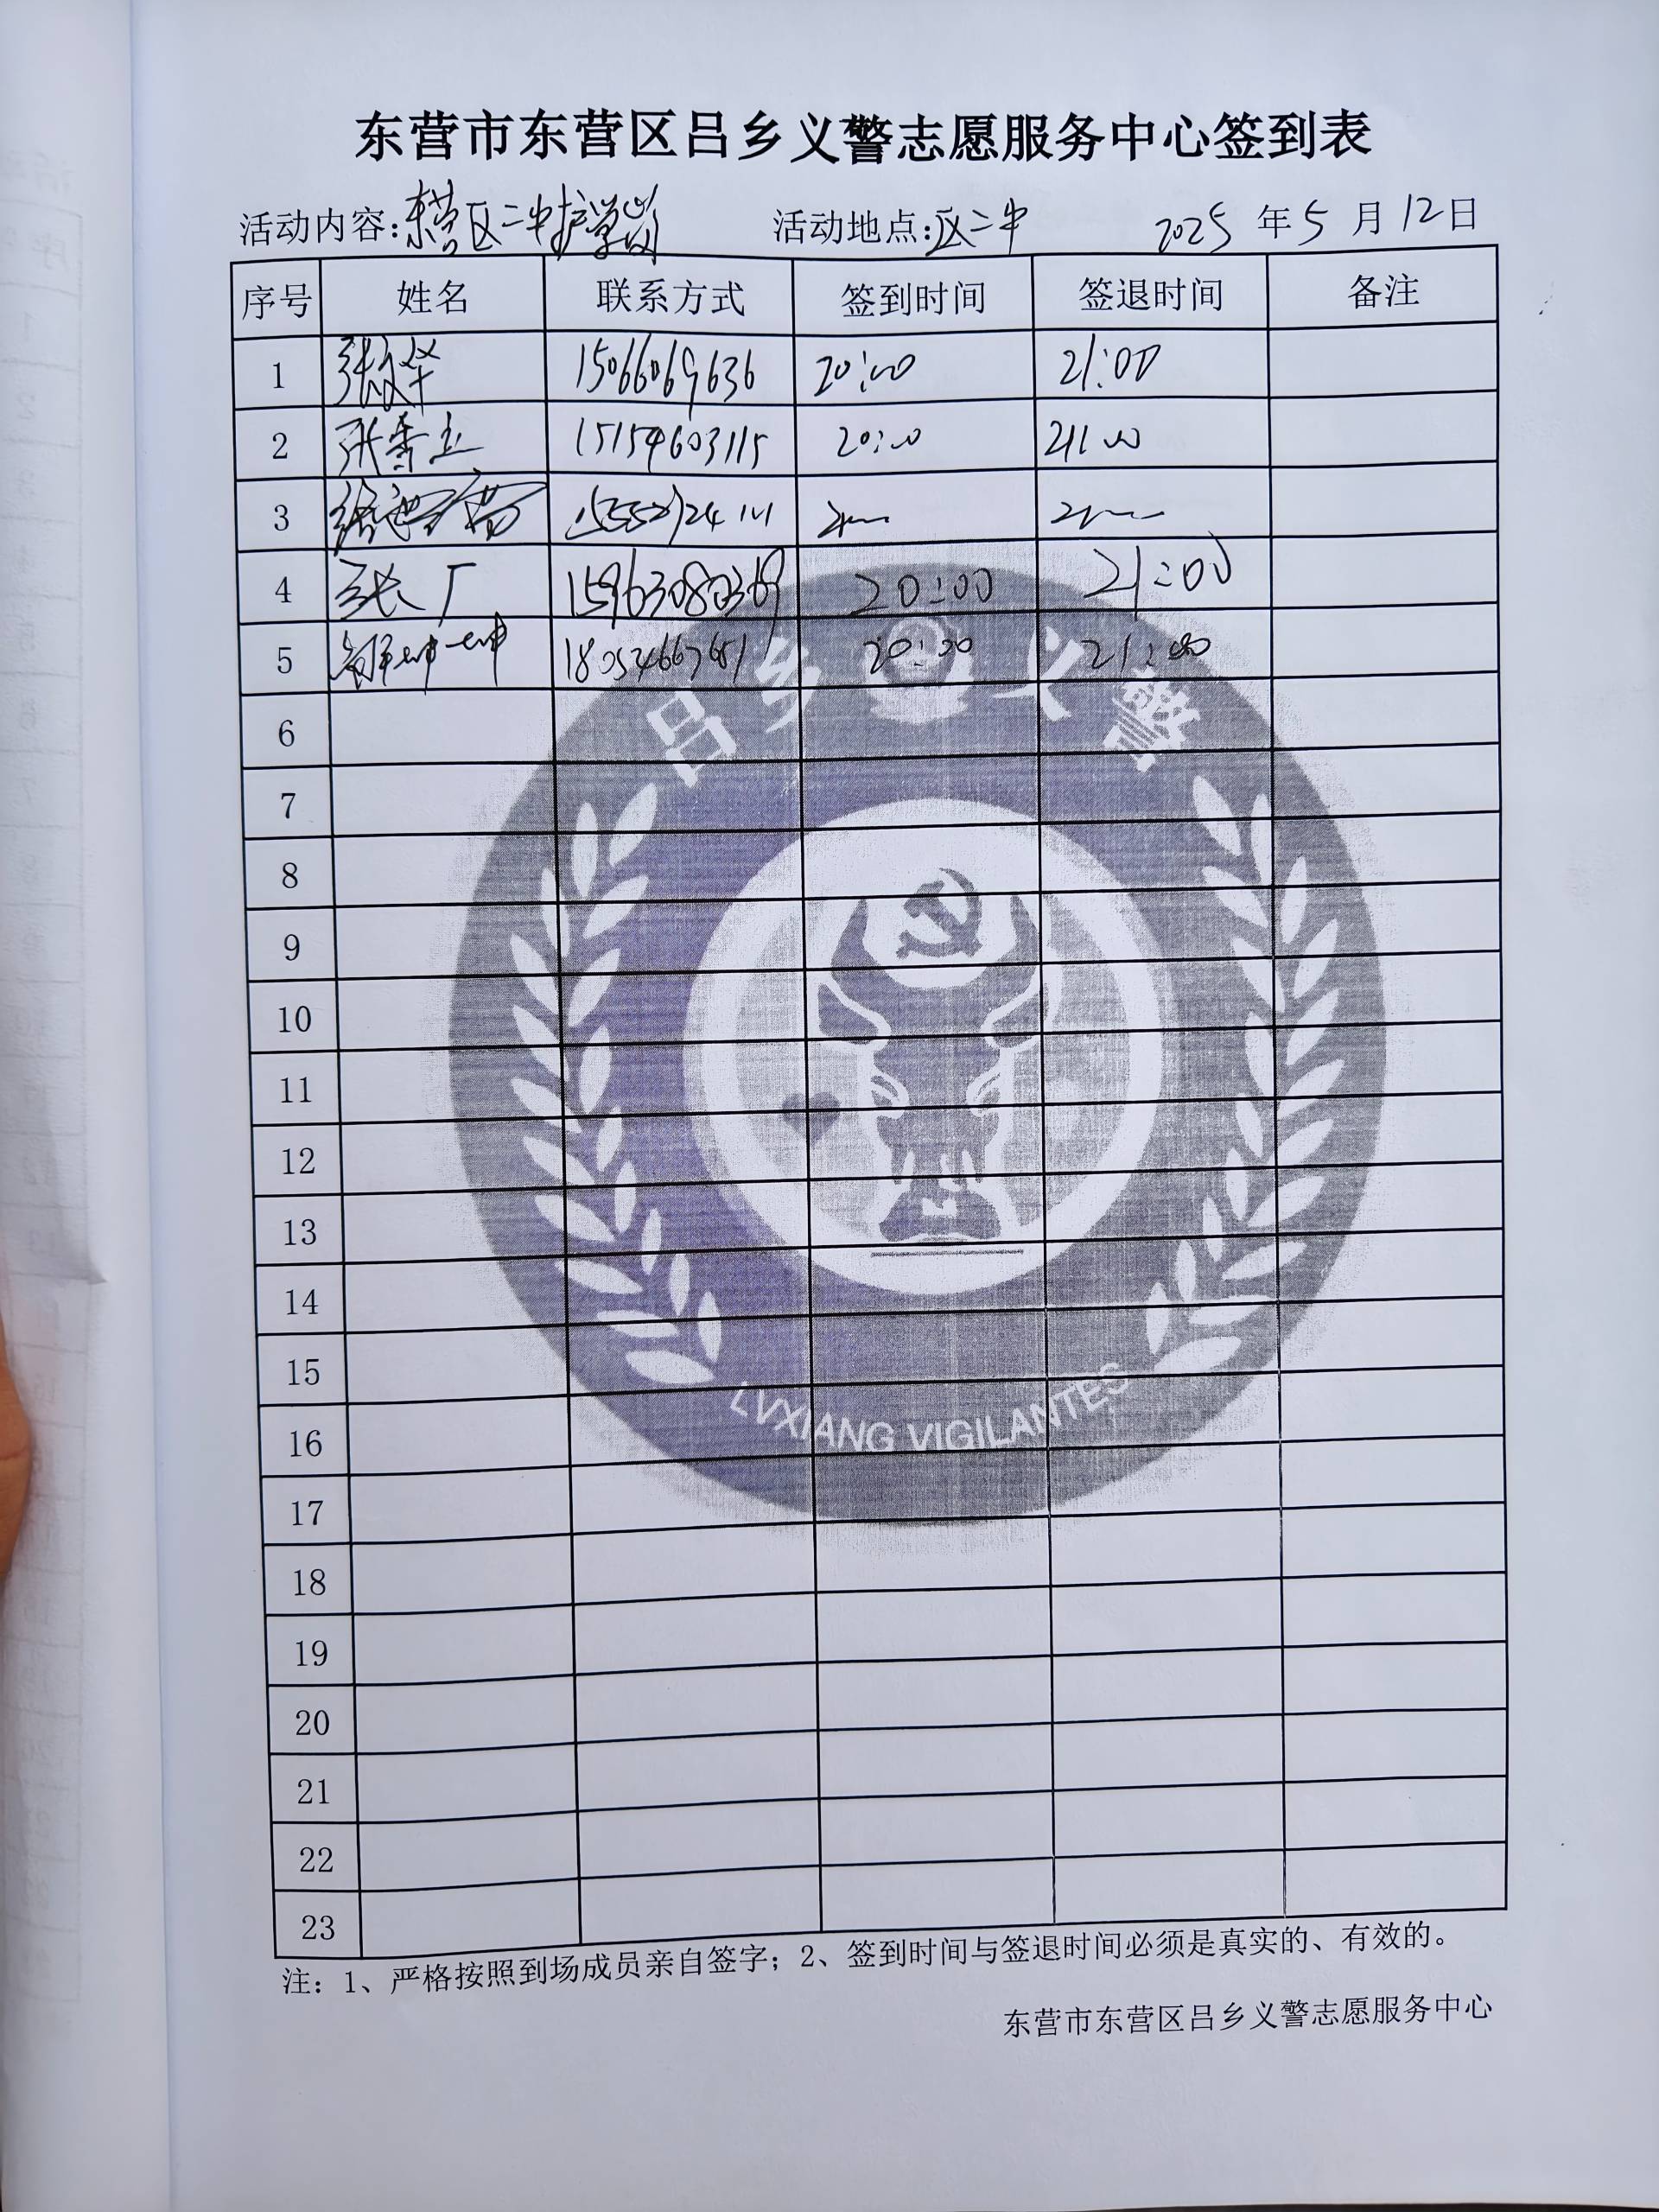 东营市东营区吕乡义警志愿服务中心签到表
活动内容:东营区二中护学岗 活动地点:区二中 2025年5月12日
序号 姓名 联系方式 签到时间 签退时间 备注
1 张 15066069636 20:00 21:00
2 张香玉 15154603115 20:00 21:00
3
4 张广 15963080369 20:00 21:00
5 18054667651 20:00 21:00
6
7
8
9
10
11
12
13
14
15
16
17
18
19
20
21
22
23
吕乡义警
LVXIANG VIGILANTES
注：1、严格按照到场成员亲自签字；2、签到时间与签退时间必须是真实的、有效的。
东营市东营区吕乡义警志愿服务中心